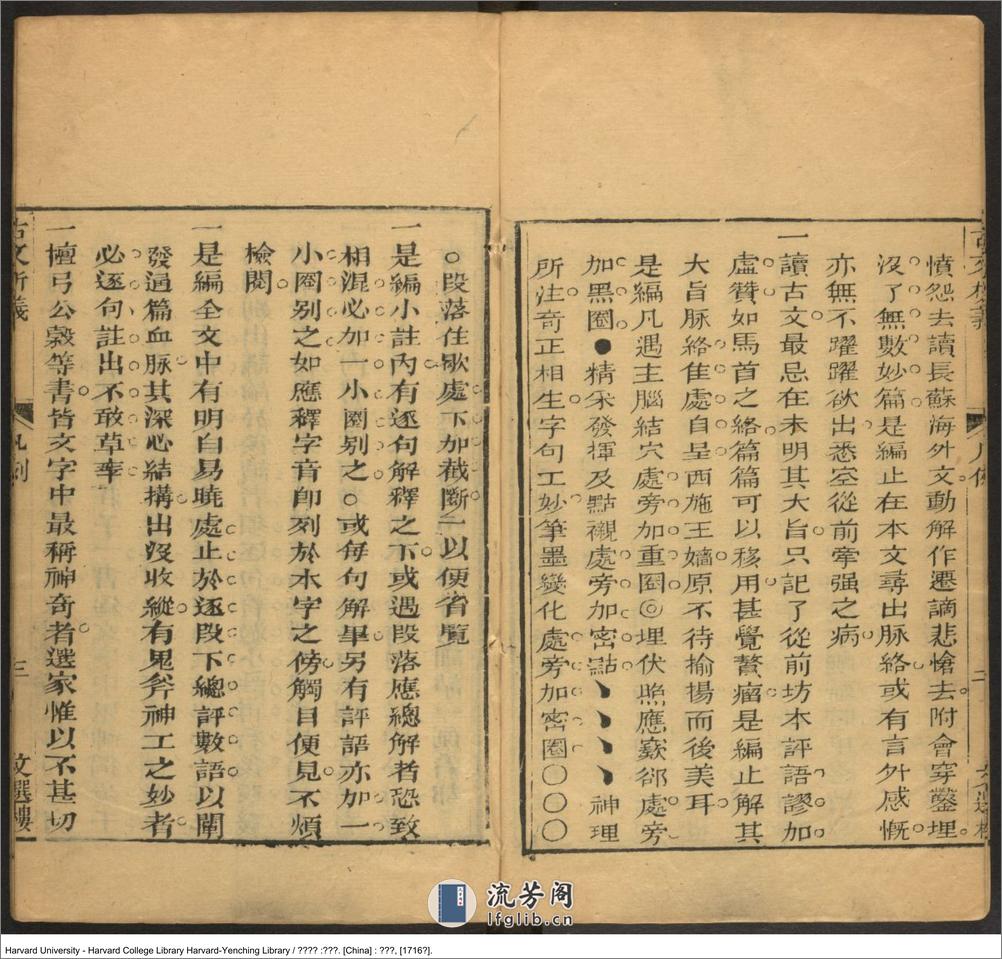 憤怨去讀長蘇海外文動解作遷謫悲愴去附會穿鑿埋
沒了無數妙篇是編止在本文尋出脉絡或有言外感慨
亦無不躍躍欲出悉空從前牽强之病
一讀古文最忌在未明其大旨只記了從前坊本評語謬加
虛贊如馬首之絡篇篇可以移用甚覺贅瘤是編止解其
大旨脉絡佳處自呈西施王嬙原不待揄揚而後美耳
是編凡遇主腦結穴處旁加重圈◎埋伏照應窾郤處旁
加黑圈●精采發揮及點襯處旁加密點﹅﹅﹅﹅神理
所注奇正相生字句工妙筆墨變化處旁加密圈○○○
○段落住歇處下加截斷一以便省覽
一是編小註內有逐句解釋之下或遇段落應總解者恐致
相混必加一小圈别之○或每句解畢另有評語亦加一
小圈别之如應釋字音卽列於本字之傍觸目便見不煩
檢閱
一是編全文中有明白易曉處止於逐段下總評數語以闡
發通篇血脉其深心結搆出沒收縱有鬼斧神工之妙者
必逐句註出不敢草率
一檀弓公穀等書皆文字中最稱神奇者選家惟以不甚切
古文析義
凡例
三
文選樓
流芳阁
lfglib.cn
Harvard University - Harvard College Library Harvard-Yenching Library / ???? :???. [China] : ???, [1716?].